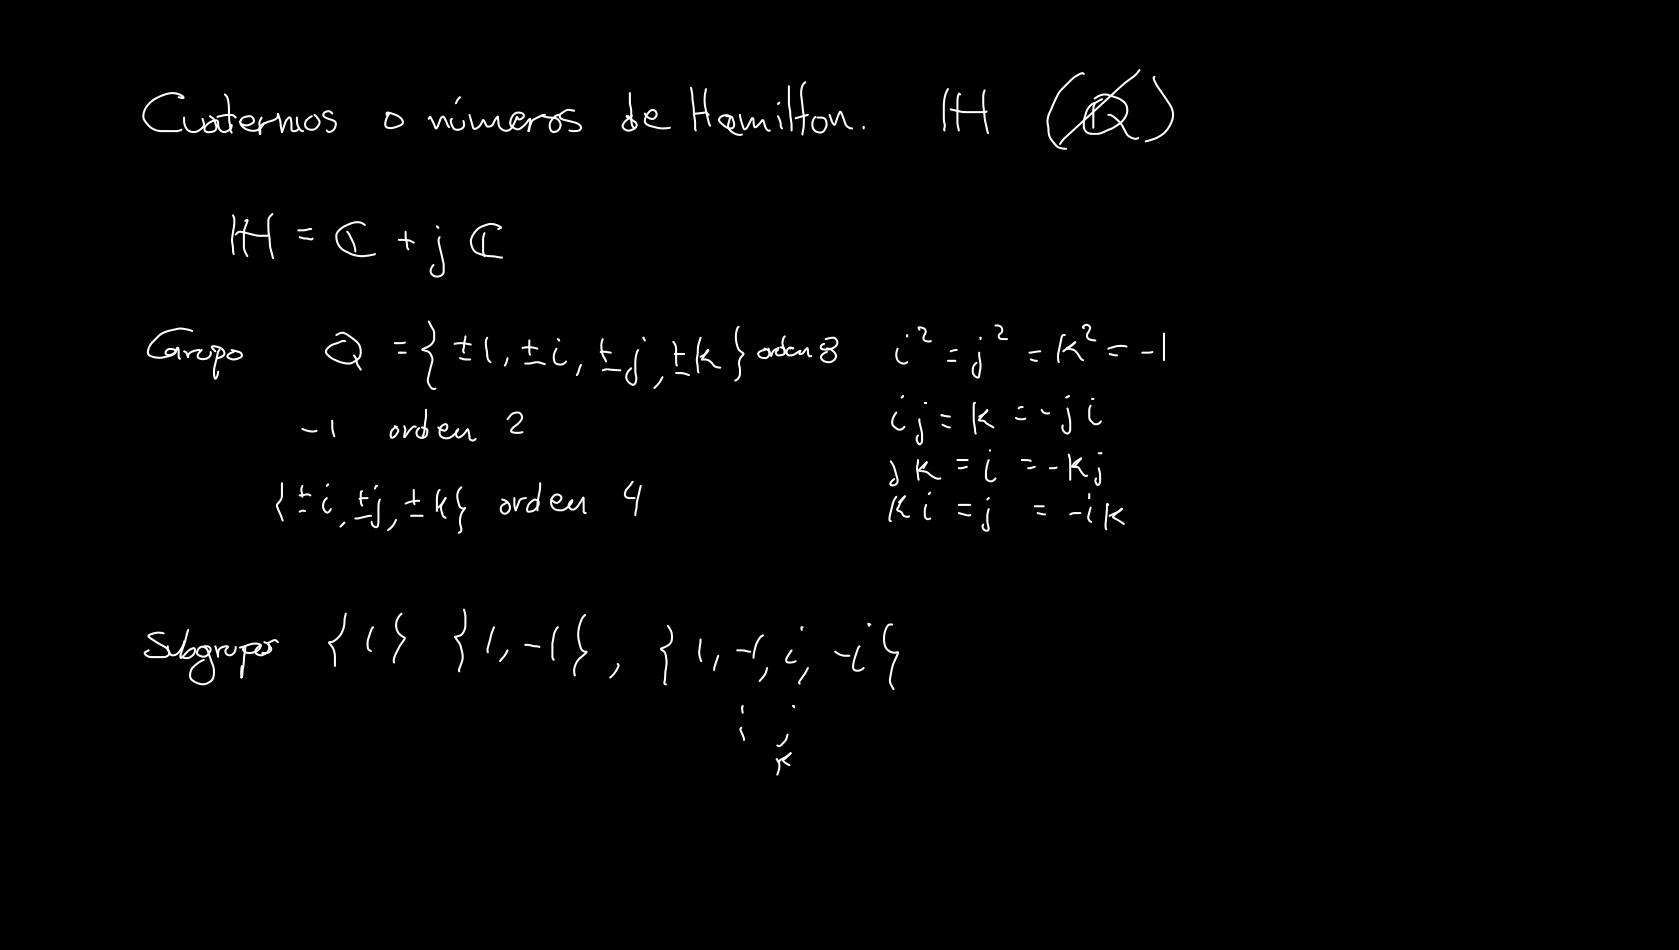 Cuaternios o números de Hamilton. ℍ (ℚ)
ℍ = ℂ + j ℂ
Grupo Q = { ±1, ±i, ±j, ±k } orden 8 i² = j² = k² = -1
-1 orden 2 ij = k = -ji
{±i, ±j, ±k} orden 4 jk = i = -kj
ki = j = -ik
Subgrupos {1} {1, -1}, {1, -1, i, -i}
j
k